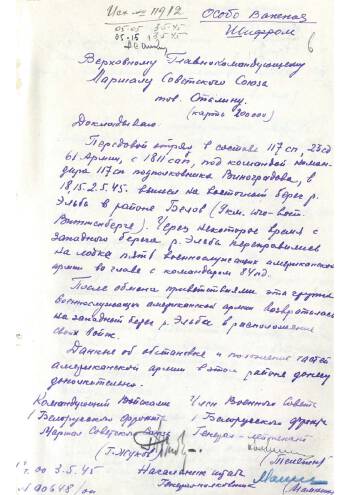 Исх № 11912
Особо Важная
05-05 3.5.45
Шифром
05-15 3.5.45
6
Верховному Главнокомандующему
Маршалу Советского Союза
тов. Сталину.
(карта 200000)
Докладываю:
Передовой отряд в составе 117 сп, 23 сд
61 Армии, с 1811 сап, под командой коман-
дира 117 сп подполковника Виноградова, в
18.15 2.5.45. вышел на восточный берег р.
Эльба в районе
Виттенберге). Через некоторое время с
западного берега р. Эльба переправились
на лодке пять военнослужащих американской
армии во главе с командиром 84 пд.
После обмена приветствиями эта группа
военнослужащих американской армии возвратилась
на западный берег р. Эльба в расположение
своих войск.
Данные об обстановке и положении частей
американской армии в этом районе донесу
дополнительно.
Командующий Войсками Член Военного Совета
1 Белорусского фронта 1 Белорусского фронта
Маршал Советского Союза Генерал-лейтенант
(Г. Жуков) (Телегин)
00 3.5.45 Начальник штаба
Генерал-полковник (Малинин)
№ 00648/оп